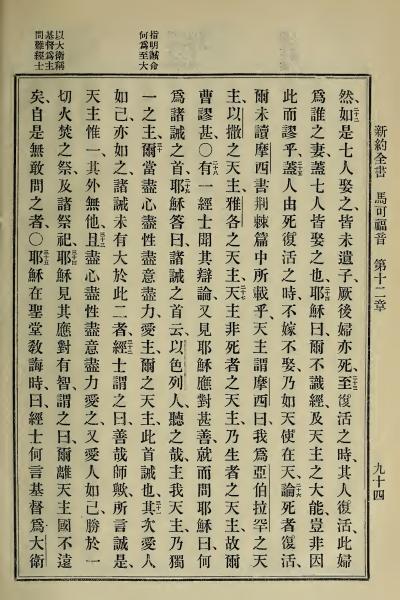 新約全書 馬可福音 第十二章 九十四
然如是七人娶之、皆未遺子、厥後婦亦死、至復活之時、其人復活、此婦
爲誰之妻、蓋七人皆娶之也、耶穌曰、爾不識經、及天主之大能、豈非因
此而謬乎、蓋人由死復活之時、不嫁不娶、乃如天使在天、論死者復活、
爾未讀摩西書荆棘篇中所載乎、天主謂摩西曰、我爲亞伯拉罕之天
主、以撒之天主、雅各之天主、天主非死者之天主、乃生者之天主、故爾
曹謬甚、○有一經士聞其辯論、又見耶穌應對甚善、就而問耶穌曰、何
爲諸誡之首、耶穌答曰、諸誡之首云、以色列人聽之哉、主我天主、乃獨
一之主、爾當盡心盡性盡意盡力愛主爾之天主、此首誡也、其次愛人
如己、亦如之、諸誡未有大於此二者、經士謂之曰、善哉師歟、所言誠是、
天主惟一、其外無他、且盡心盡性盡意盡力愛之、又愛人如己、勝於一
切火焚之祭、及諸祭祀、耶穌見其應對有智、謂之曰、爾離天主國不遠
矣、自是無敢問之者、○耶穌在聖堂敎誨時、曰、經士何言基督爲大衛
指明誡命
何爲至大
以大衛稱
基督爲主
問難經士